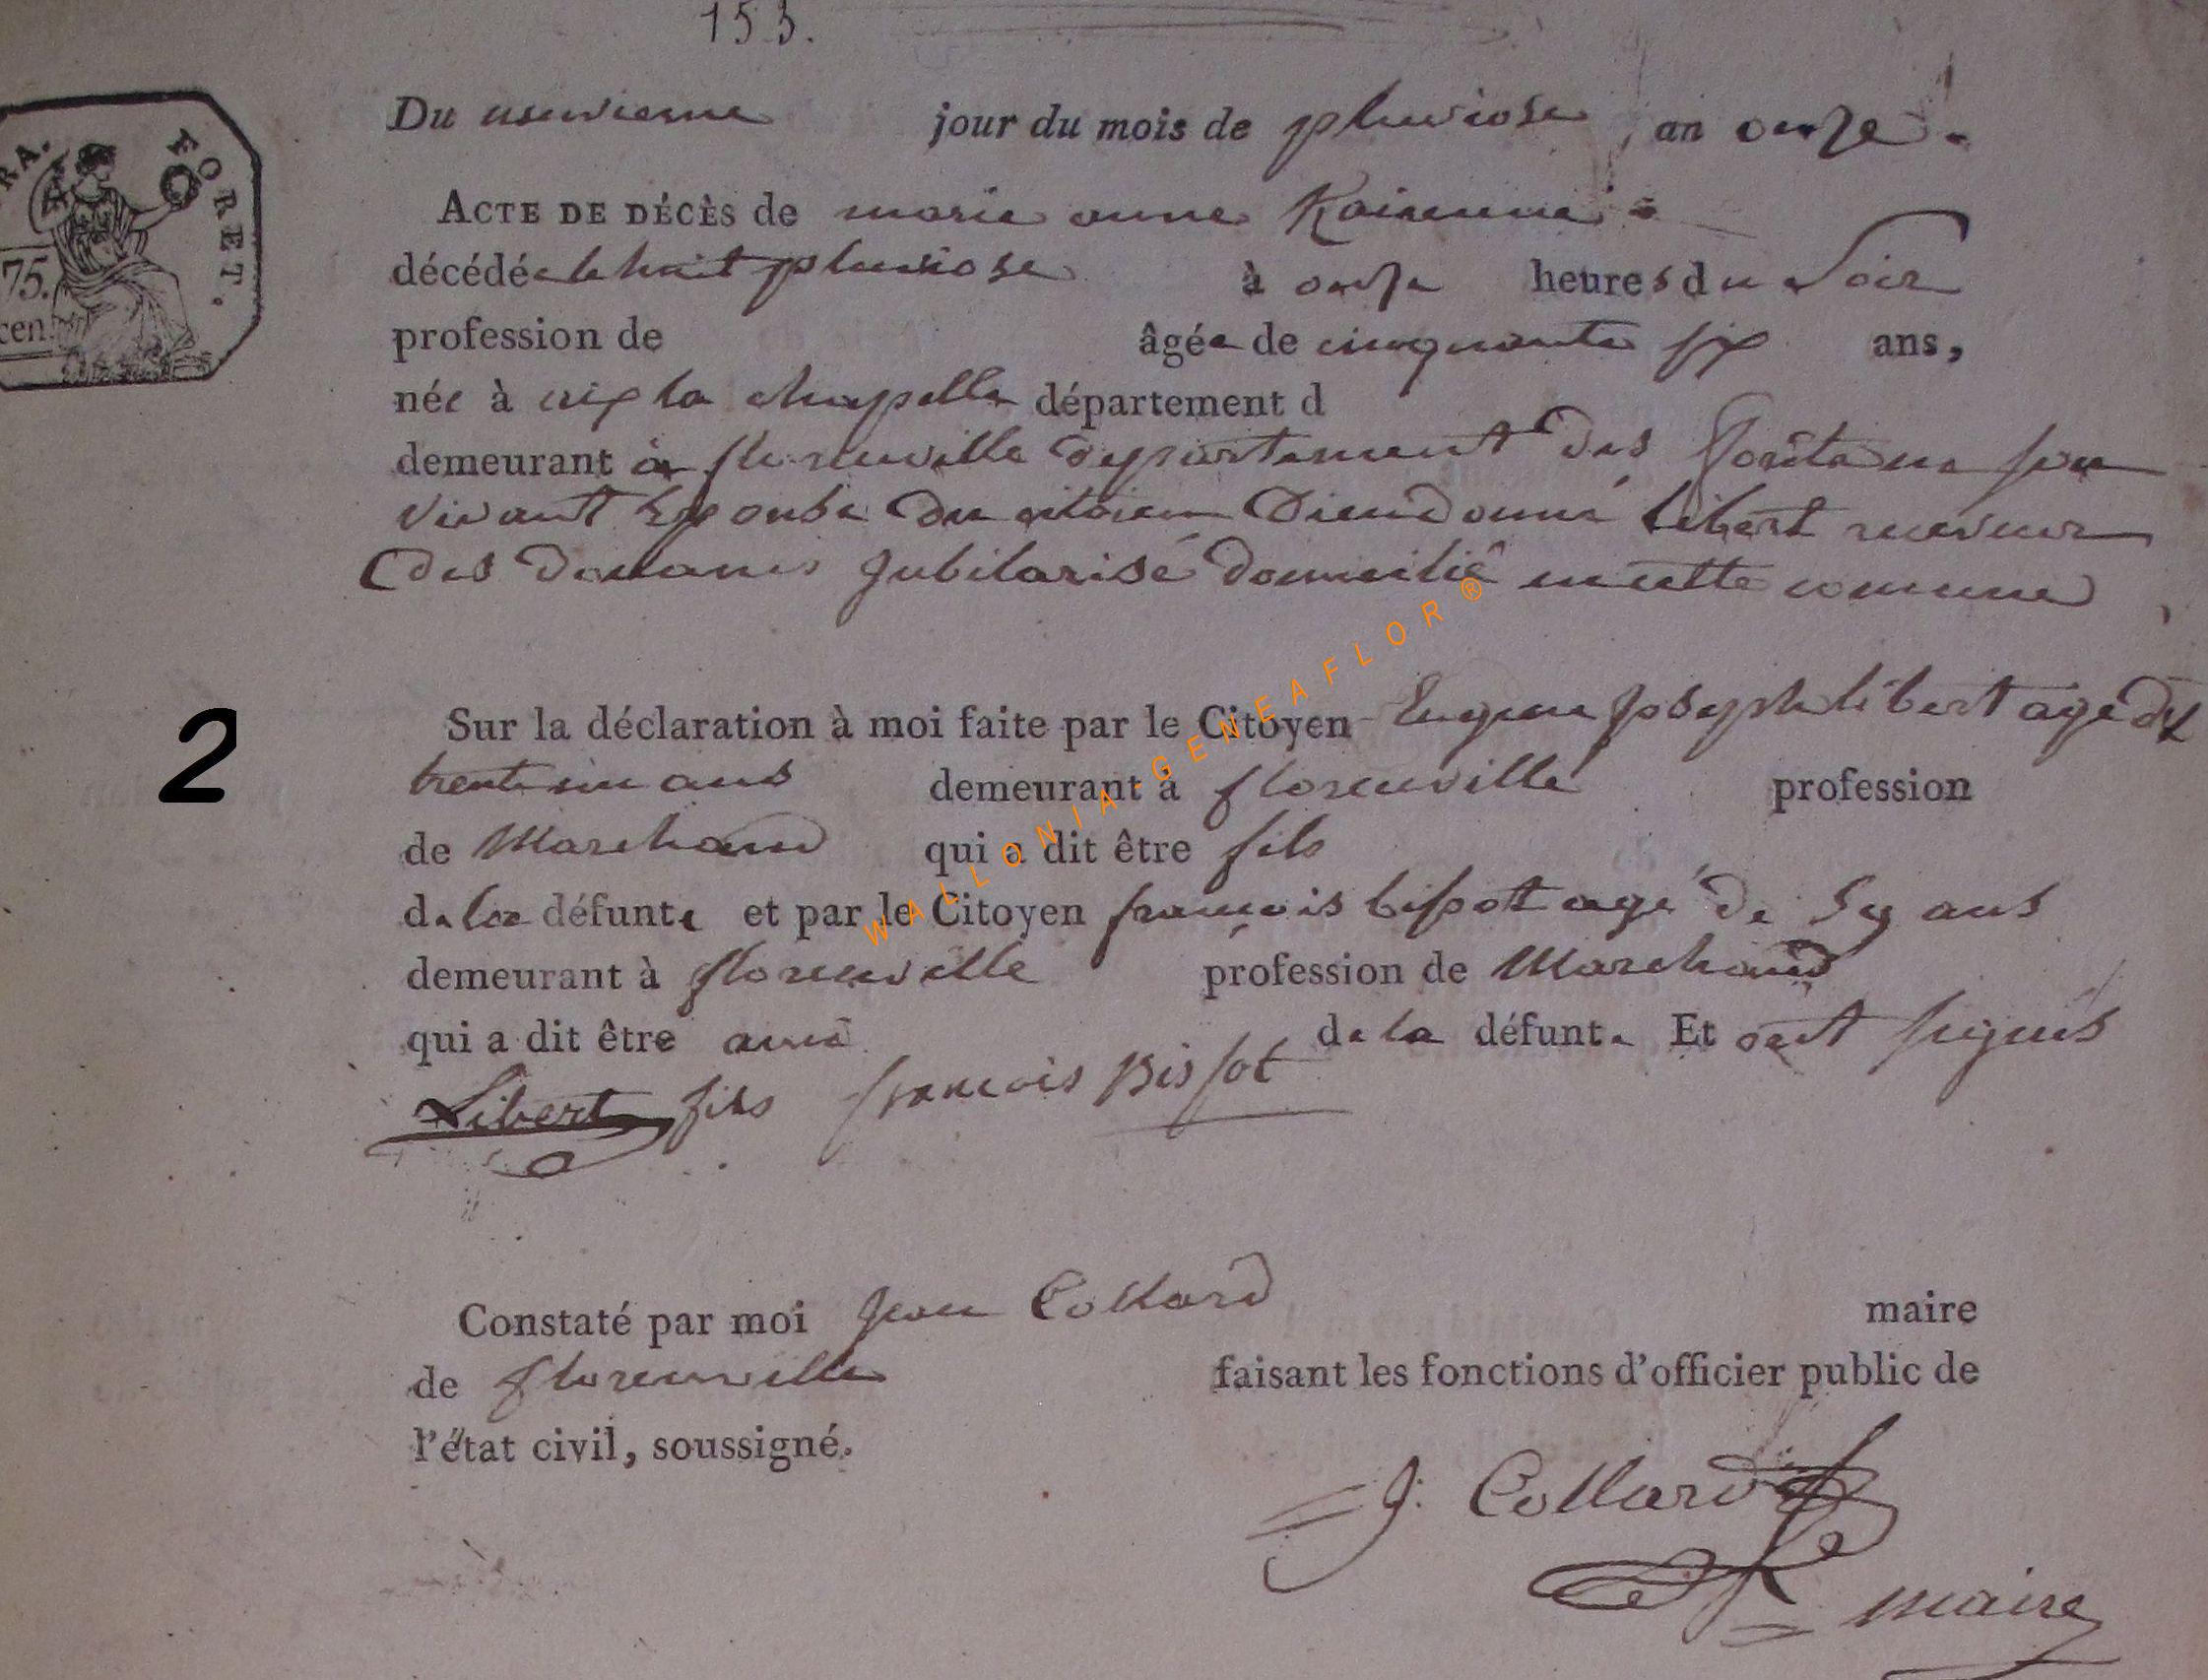 153.
RA. FORET.
75.
cen.
Du neuvieme jour du mois de pluviose an onze.
ACTE DE DÉCÈS de marie anne
décédée le huit pluviose à onze heures du Soir
profession de âgée de cinquante six ans,
née à aix la chapelle département d
demeurant à florenville departement des forêts en son
vivant Epouse du citoien Dieudonné libert receveur
des Douanes jubilarisé domicilié en cette comune
2
Sur la déclaration à moi faite par le Citoyen Eugene joseph libert agé de
trente ans demeurant à florenville profession
de Marchand qui a dit être fils
de la défunte et par le Citoyen françois bissot agé de ans
demeurant à florenville profession de Marchand
qui a dit être ami de la défunte Et ont signés
Libert fils francois Bissot
Constaté par moi jean Collard maire
de florenville faisant les fonctions d'officier public de
l'état civil, soussigné.
J. Collard
maire
WALLONIA-GENEAFLOR®